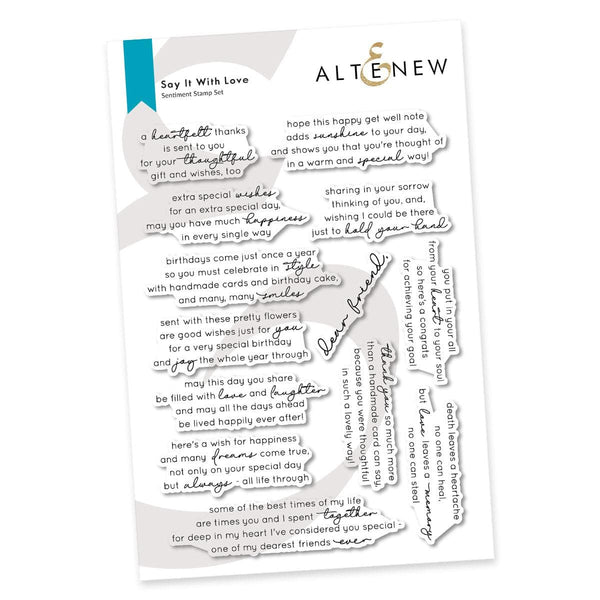 Say It With Love
Sentiment Stamp Set
ALTENEW
a heartfelt thanks
is sent to you
for your thoughtful
gift and wishes, too
hope this happy get well note
adds sunshine to your day,
and shows you that you're thought of
in a warm and special way!
extra special wishes
for an extra special day,
may you have much happiness
in every single way
sharing in your sorrow
thinking of you, and,
wishing I could be there
just to hold your hand
birthdays come just once a year
so you must celebrate in style
with handmade cards and birthday cake,
and many, many smiles
dear friend,
you put in your all
from your heart to your soul
so here's a congrats
for achieving your goal!
sent with these pretty flowers
are good wishes just for you
for a very special birthday
and joy the whole year through
thank you so much more
than a handmade card can say,
because you were thoughtful
in such a lovely way!
may this day you share
be filled with love and laughter
and may all the days ahead
be lived happily ever after!
death leaves a heartache
no one can heal,
but love leaves a memory
no one can steal
here's a wish for happiness
and many dreams come true,
not only on your special day
but always - all life through
some of the best times of my life
are times you and I spent together
for deep in my heart I've considered you special -
one of my dearest friends ever